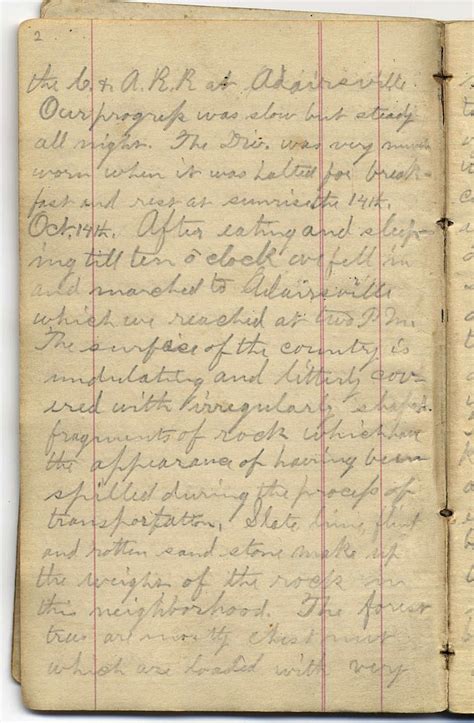 2
the C. & A. R. R at Adairsville.
Our progress was slow but steady
all night. The Div. was very much
worn when it was halted for break-
fast and rest at sunrise the 14th.
Oct. 14th. After eating and sleep-
ing till ten o'clock we fell in
and marched to Adairsville
which we reached at two P.M.
The surface of the country is
undulating and litterly cov-
ered with irregularly shaped
fragments of rock which have
the appearance of having been
spilled during the process of
transportation. Slate lime, flint
and rotten sand stone make up
the weight of the rock in
this neighborhood. The forest
trees are mostly chestnut
which are loaded with very